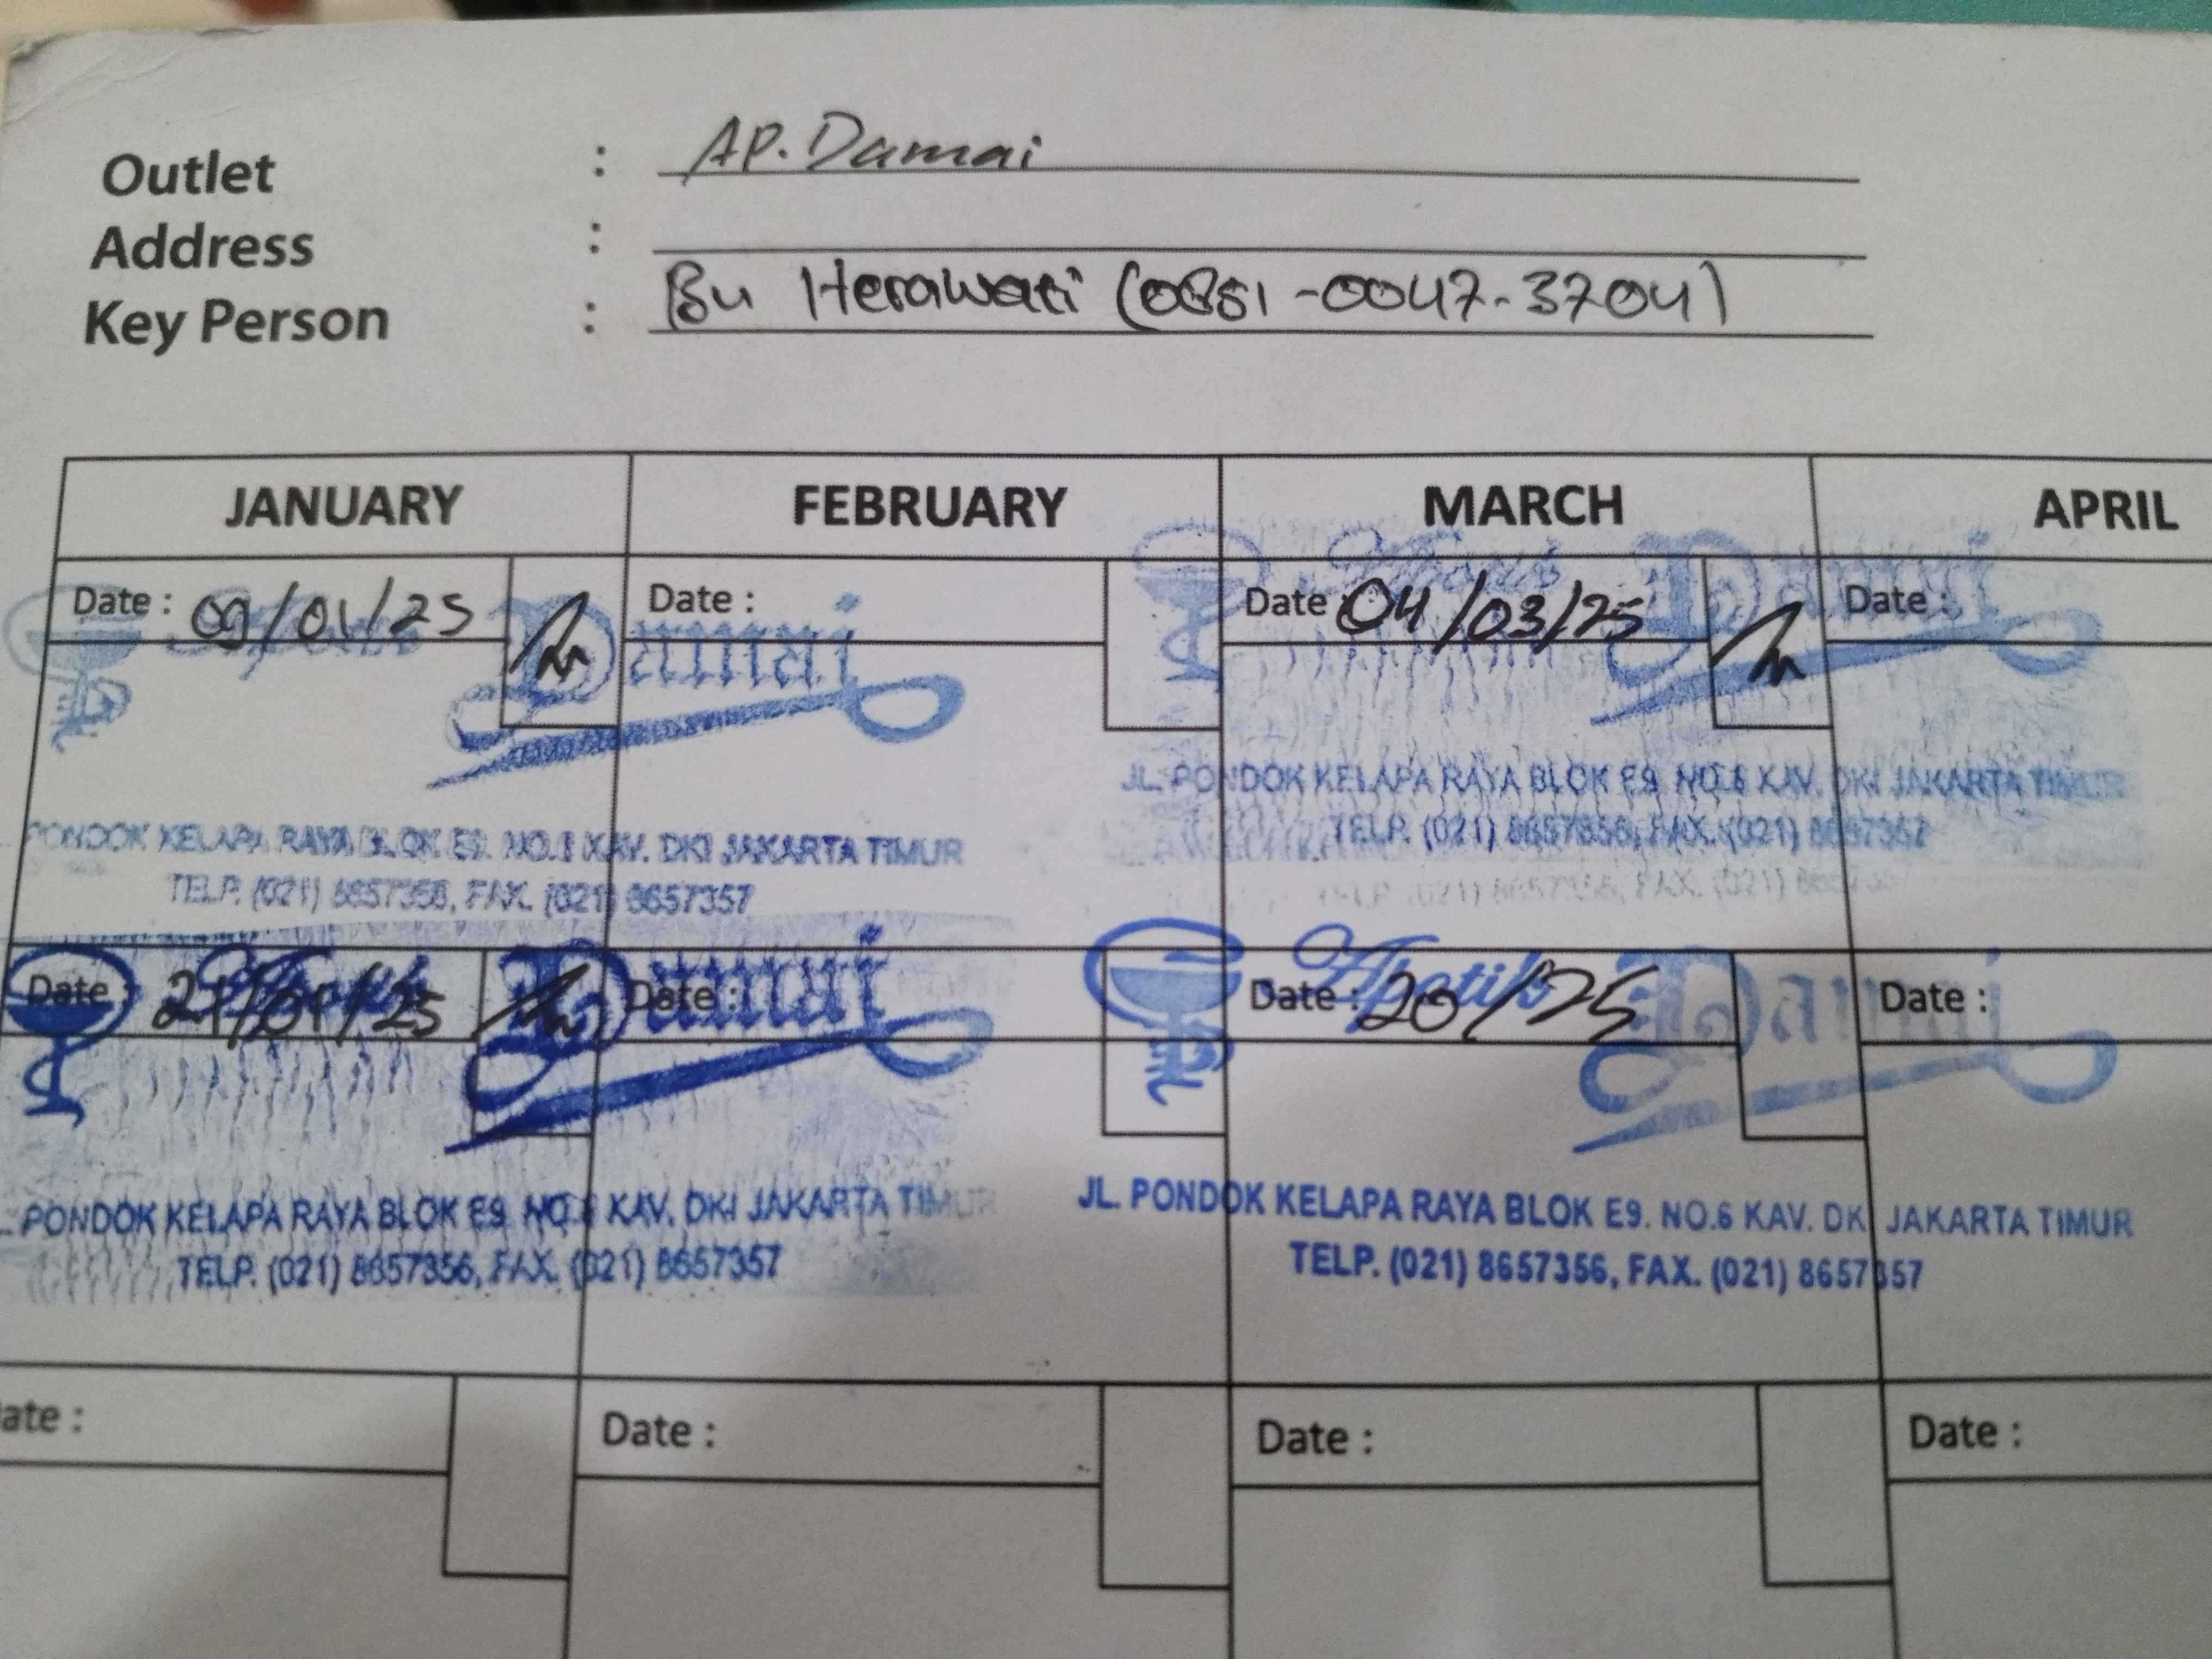 Outlet : AP. Damai
Address :
Key Person : Bu Herawati (0851-0047-3704)
JANUARY FEBRUARY MARCH APRIL
Date : 09/01/25 Date : Date : 04/03/25 Date :
Damai
Damai
JL. PONDOK KELAPA RAYA BLOK E9. NO.6 KAV. DKI JAKARTA TIMUR
TELP. (021) 8657356, FAX. (021) 8657357
PONDOK KELAPA RAYA BLOK E9. NO.6 KAV. DKI JAKARTA TIMUR
TELP. (021) 8657356, FAX. (021) 8657357
TELP. (021) 8657356, FAX. (021)
Date : 21/01/25 Date : Date : 20/25 Date :
Apotik Damai
Apotik Damai
PONDOK KELAPA RAYA BLOK E9. NO.6 KAV. DKI JAKARTA TIMUR
TELP. (021) 8657356, FAX. (021) 8657357
JL. PONDOK KELAPA RAYA BLOK E9. NO.6 KAV. DKI JAKARTA TIMUR
TELP. (021) 8657356, FAX. (021) 8657357
ate : Date : Date : Date :